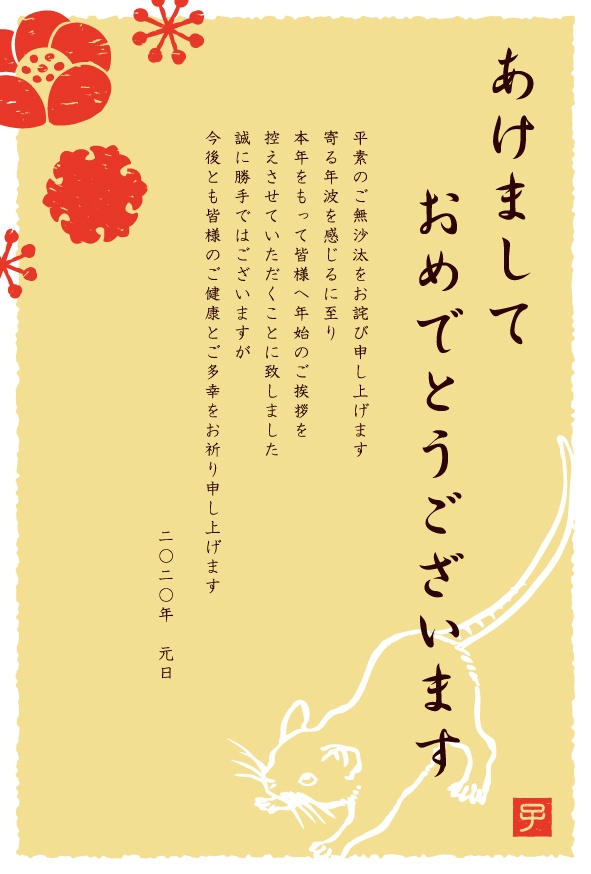 あけまして
おめでとうございます
平素のご無沙汰をお詫び申し上げます
寄る年波を感じるに至り
本年をもって皆様へ年始のご挨拶を
控えさせていただくことに致しました
誠に勝手ではございますが
今後とも皆様のご健康とご多幸をお祈り申し上げます
二〇二〇年　元日
子